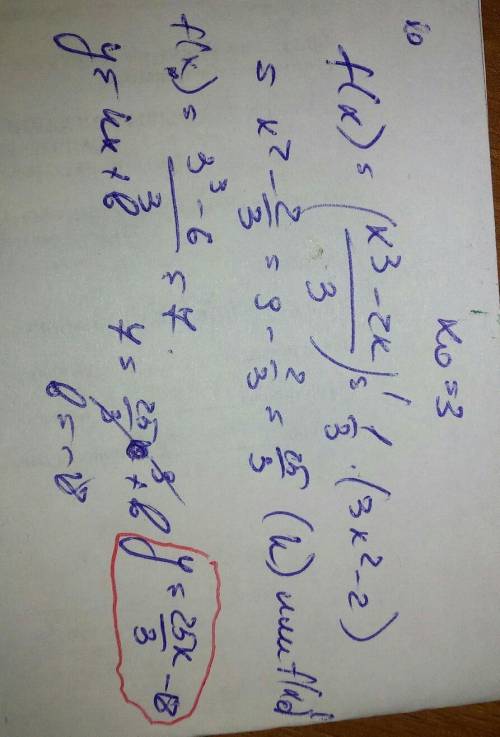 10
x₀ = 3
f(x) = (x³ - 2x / 3)' = 1/3 · (3x² - 2)
= x² - 2/3 = 9 - 2/3 = 25/3 (k) или f'(x₀)
f(x₀) = 3³ - 6 / 3 = 7.
y = kx + b 7 = 25/3 · 3 + b y = 25x/3 - 18
b = -18